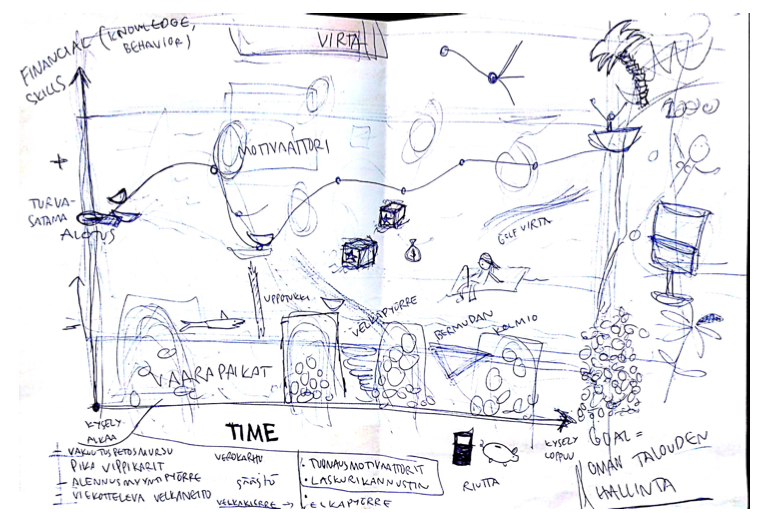 FINANCIAL (KNOWLEDGE,
BEHAVIOR)
SKILLS
VIRTA
+
MOTIVAATTORI
TURVA-
SATAMA
ALOTUS
GOLF VIRTA
UPPOTUKKI
VELKAPYÖRRE
BERMUDAN
KOLMIO
VAARAPAIKAT
KYSELY
ALKAA
TIME
KYSELY
LOPPUU
GOAL =
OMAN TALOUDEN
HALLINTA
RIUTTA
PIKAVIPPIKARIT
ALENNUSMYYNTIPYÖRRE
VIEKOTTELEVA VELKANEITO
VEROKARHU
SÄÄSTÖ
VELKAKIERRE →
• TUONAUSMOTIVAATTORIT
• LASKURIKANNUSTIN
ELKAPYÖRRE